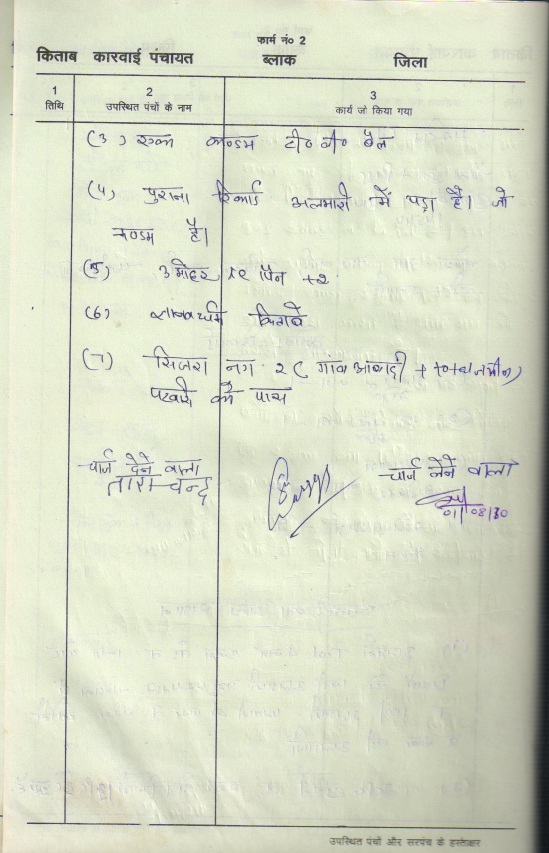 फार्म नं० 2
किताब कारवाई पंचायत ब्लाक जिला
1 2 3
तिथि उपस्थित पंचों के नाम कार्य जो किया गया
(3) एक कण्डम टी० वी० बैल
(4) पुराना रिकार्ड अलमारी में पड़ा है। जो
कण्डम है।
(5) 3 मोहर पैन +2
(6) किताबें
(7) सिजरा नग 2 ( गांव आबादी + जमीन)
पटवारी के पास
चार्ज देने वाला चार्ज लेने वाला
ताराचन्द
01/08/10
उपस्थित पंचों और सरपंच के हस्ताक्षर